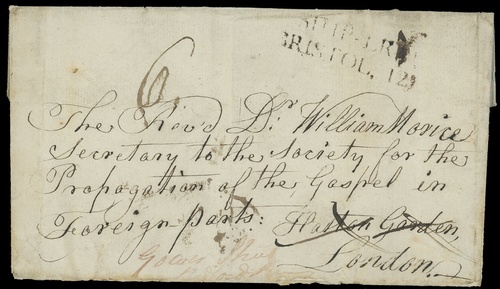 SHIP-LRE
BRISTOL, 129
6
The Rev'd Dr. William Morice
Secretary to the Society for the
Propogation of the Gospel in
Foreign parts: Hatton Garden,
London.
Gower